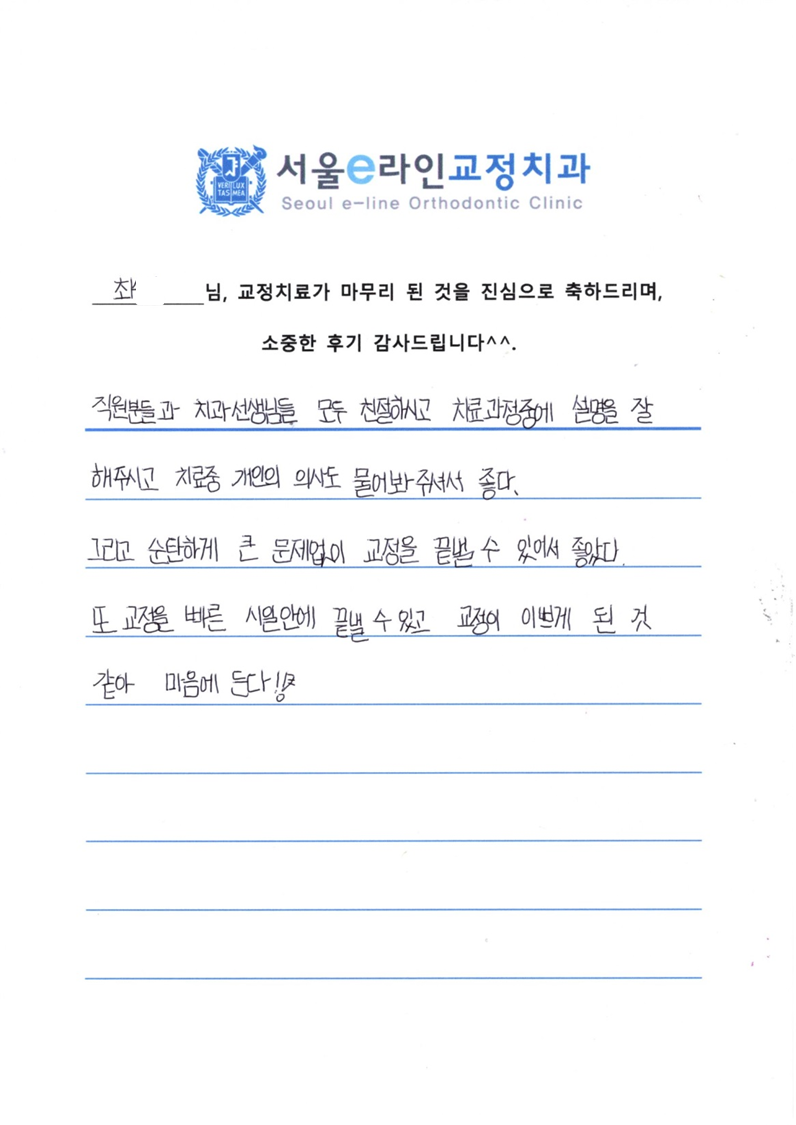 VERI LUX
TAS MEA
서울e라인교정치과
Seoul e-line Orthodontic Clinic
최 님, 교정치료가 마무리 된 것을 진심으로 축하드리며,
소중한 후기 감사드립니다^^.
직원분들과 치과선생님들 모두 친절하시고 치료과정중에 설명을 잘
해주시고 치료중 개인의 의사도 물어봐주셔서 좋다.
그리고 순탄하게 큰 문제없이 교정을 끝낼 수 있어서 좋았다.
또 교정을 빠른 시일안에 끝낼 수 있고 교정이 이쁘게 된 것
같아 마음에 든다!!